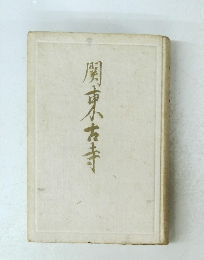 関東古寺